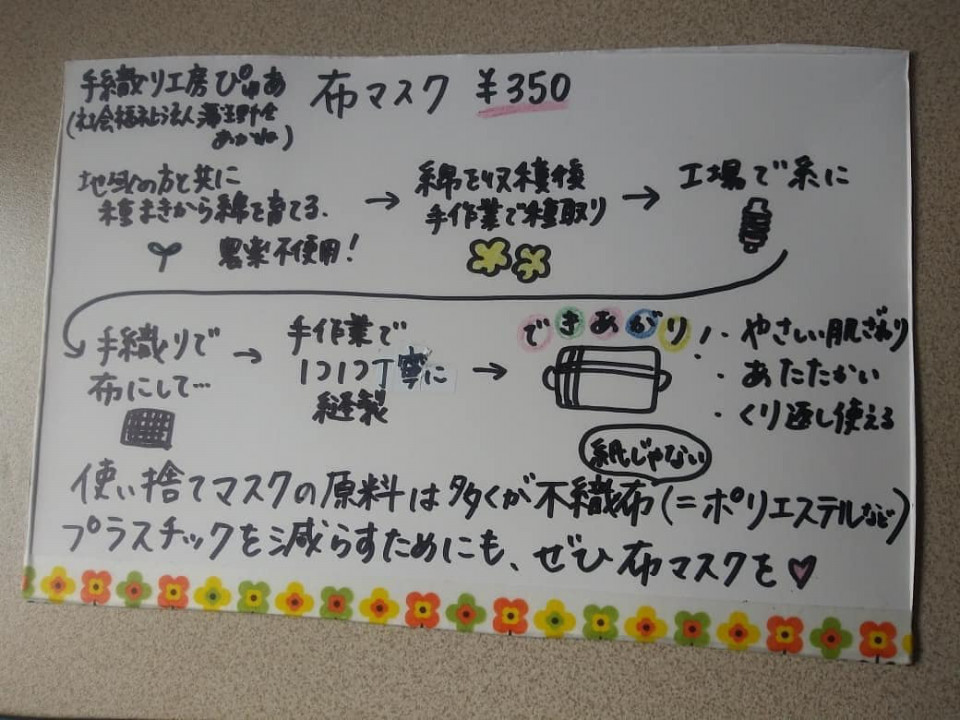 手織り工房ぴゅあ
布マスク ¥350
(社会福祉法人蒲生野会
あかね)
地域の方と共に
種まきから綿を育てる.
農薬不使用!
→
綿を収穫後
手作業で種取り
→
工場で糸に
手織りで
布にして…
→
手作業で
コツコツ丁寧に
縫製
→
できあがり!
・やさしい肌ざわり
・あたたかい
・くり返し使える
紙じゃない
使い捨てマスクの原料は多くが不織布(=ポリエステルなど)
プラスチックを減らすためにも、ぜひ布マスクを♡